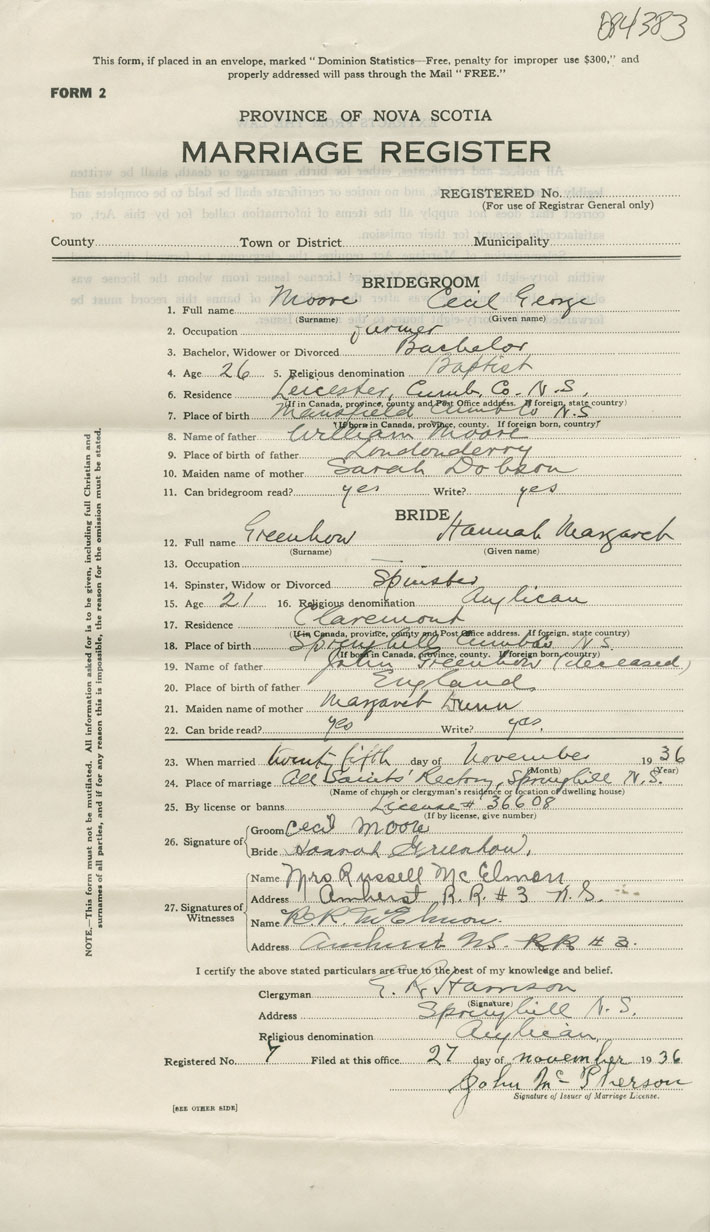 084383
This form, if placed in an envelope, marked "Dominion Statistics—Free, penalty for improper use $300," and
properly addressed will pass through the Mail "FREE."
FORM 2
PROVINCE OF NOVA SCOTIA
MARRIAGE REGISTER
REGISTERED No.
(For use of Registrar General only)
County Town or District Municipality
BRIDEGROOM
1. Full name Moore Cecil George
(Surname) (Given name)
2. Occupation Farmer
3. Bachelor, Widower or Divorced Bachelor
4. Age 26 5. Religious denomination Baptist
6. Residence Leicester, Cumb. Co. N.S.
(If in Canada, province, county and Post Office address. If foreign, state country)
7. Place of birth Mansfield Cumb Co N.S
(If born in Canada, province, county. If foreign born, country)
8. Name of father William Moore
9. Place of birth of father Londonderry
10. Maiden name of mother Sarah Dobson
11. Can bridegroom read? yes Write? yes
BRIDE
12. Full name Greenhow Hannah Margaret
(Surname) (Given name)
13. Occupation —
14. Spinster, Widow or Divorced Spinster
15. Age 21 16. Religious denomination Anglican
17. Residence Claremont
(If in Canada, province, county and Post Office address. If foreign, state country)
18. Place of birth Springhill Cumb Co N.S.
(If born in Canada, province, county. If foreign born, country)
19. Name of father John Greenhow (deceased)
20. Place of birth of father England
21. Maiden name of mother Margaret Dunn
22. Can bride read? yes Write? yes.
23. When married twenty fifth day of November 1936
(Month) (Year)
24. Place of marriage All Saints' Rectory, Springhill N.S.
(Name of church or clergyman's residence or location of dwelling house)
25. By license or banns License # 36608
(If by license, give number)
26. Signature of Groom Cecil Moore
Bride Hannah Greenhow.
27. Signatures of Witnesses
Name Mrs. Russell McElman
Address Amherst R.R. #3 N.S.
Name R.R. McElmon.
Address Amherst NS. RR # 3.
I certify the above stated particulars are true to the best of my knowledge and belief.
Clergyman E. R. Harrison
(Signature)
Address Springhill N.S.
Religious denomination Anglican
Registered No. 7 Filed at this office 27 day of november 1936
John McPherson
Signature of Issuer of Marriage License.
[SEE OTHER SIDE]
NOTE.—This form must not be mutilated. All information asked for is to be given, including full Christian and
surnames of all parties, and if for any reason this is impossible, the reason for the omission must be stated.